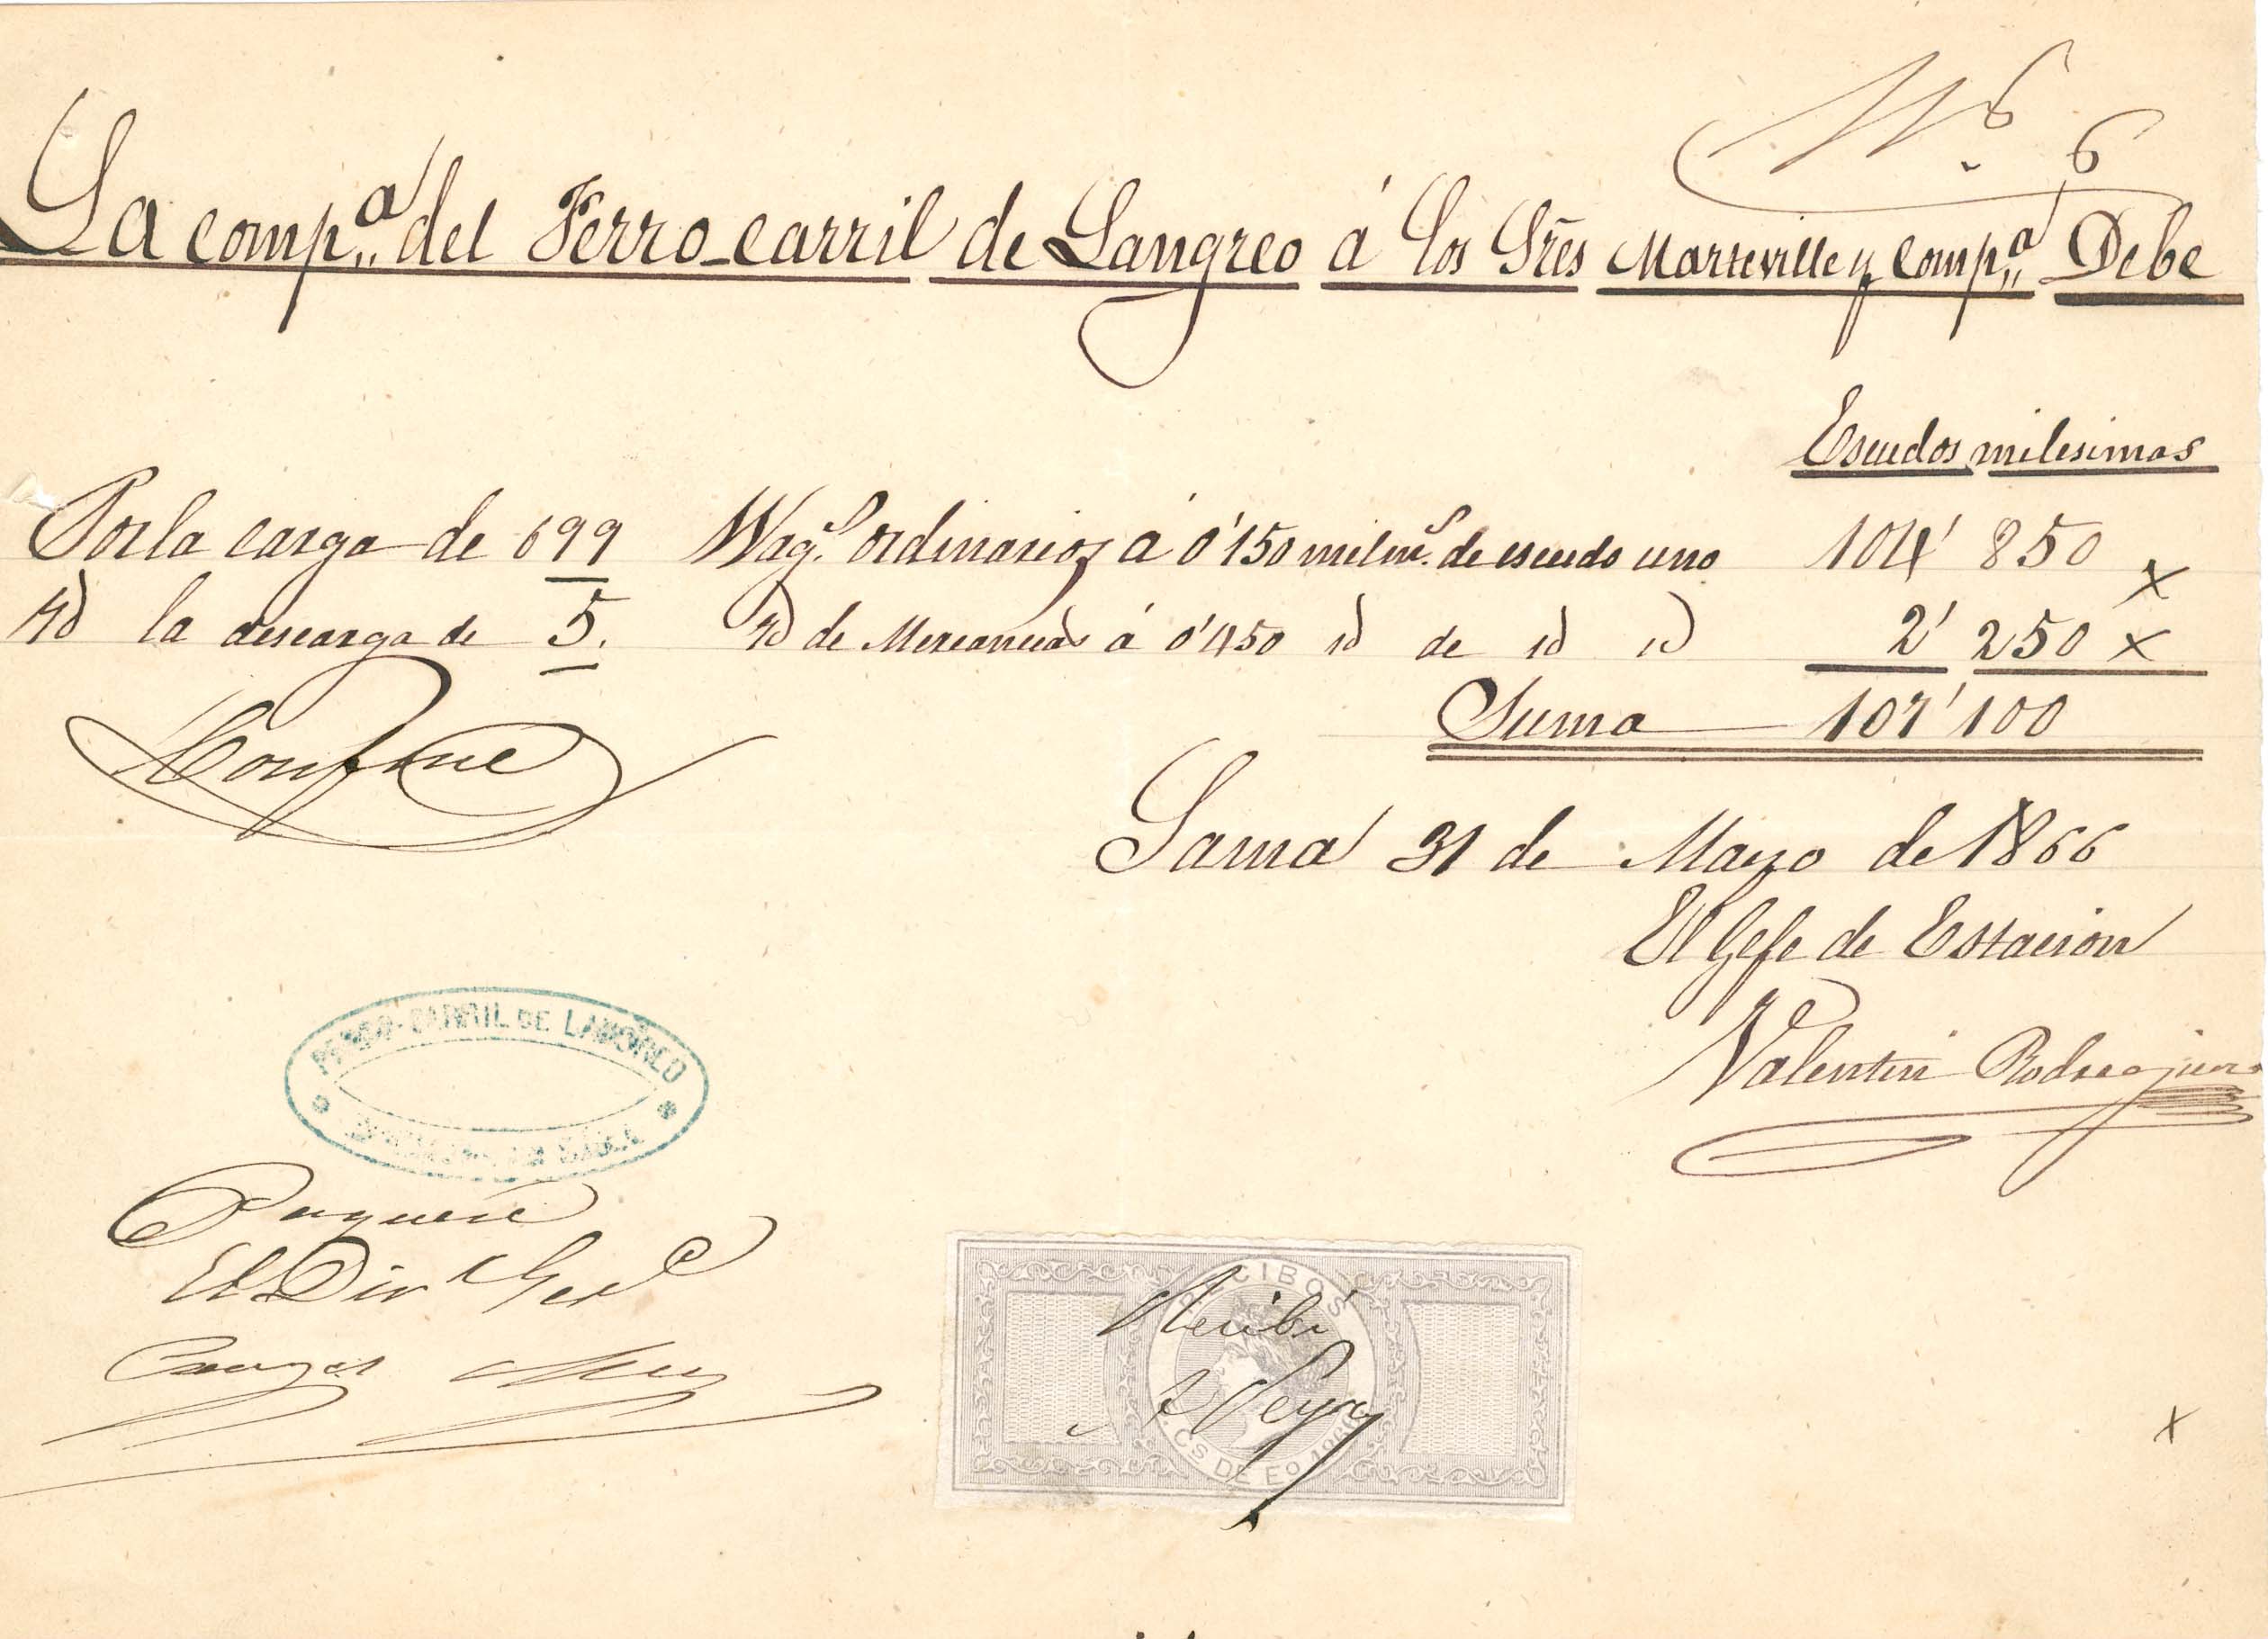 Nº 6
La compª del Ferro-carril de Langreo á los Sres Marteville y compª Debe
Escudos milesimas
Por la carga de 699 Wags. ordinarios á 0'150 milms. de escudo uno 104' 850 x
Yd la descarga de 5. Yd de Mercancias á 0'450 id de id id 2' 250 x
Suma 107' 100
Conforme
Sama 31 de Mayo de 1866
El Gefe de Estacion
Valentin Rodriguez
FERRO-CARRIL DE LANGREO
Paguese
El Dir Gerl
RECIBOS
Recibi
CS DE Eº 1866
x